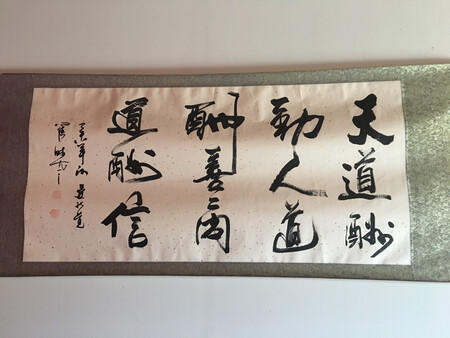 天道酬
勤人道
酬善商
道酬信